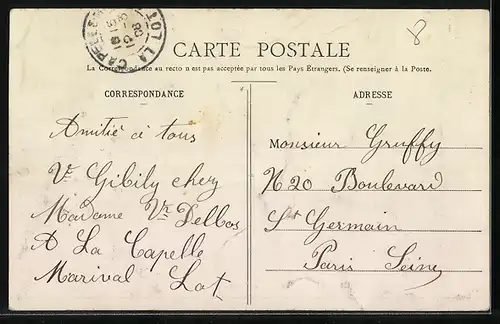 CARTE POSTALE
La Correspondance au recto n'est pas acceptée par tous les Pays Étrangers. (Se renseigner à la Poste.
CORRESPONDANCE
Amitié à tous
Ve Gibily chez
Madame Ve Delbos
A La Capelle
Marival Lot
ADRESSE
Monsieur Gruffy
N 20 Boulevard
St Germain
Paris Seine
8
LA CAPELLE
LOT